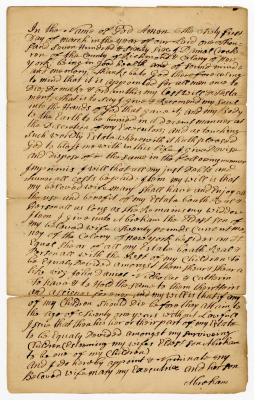 In the Name of God Amen the Sixty first
Day of march in the year of our Lord one Thou
sand Seven Hundred & Seventy five I Daniel
of the County of Richmond & Colony of New
York being in good Health and of Sound mind
and memory Thanks be to God therefore calling
to mind that it is appointed for all men once to
Die, Do make & ordain this my last will & testa
ment that is to say I give & Recommend my Soul in
into the Hands of God that gave it, and my Body
to the Earth to be buried in a decent manner at
the Discretion of my Executors; and as touching
Such worldly Estate wherewith it hath pleased
God to bless me with in this Life I give Devise
and dispose of the same in the following manner
my mind & will that all my just Debts and
funeral costs be paid & my will is that
my beloved wife Mary shall have and Enjoy all
the use and benefit of my Estate both Real &
Personal as Long as She Remains my widow
Item I give unto Abraham the Eldest Son of
my beloved wife Twenty pounds Current mo
ney of the Colony of New York besides an
Equal Share of all my Estate both Real &
Personal with the Rest of my Children to
be Equaly Devided amongst them Share & Share a
like viz John Daniel & Catherin
to have & to Hold the same to them their Heirs
and assigns for ever, and my will is that if any
of my Children Should Die before they attain to
the age of Twenty one years without Lawfull
Issue that then his or their part of my Estate
to be Equaly Devided amongst my Surviving
Children Esteeming my wifes Eldest Son Abraham
to be one of my Children
and I do hereby appoint & nominate my
Beloved wife Mary my Executrix and her Son
Abraham